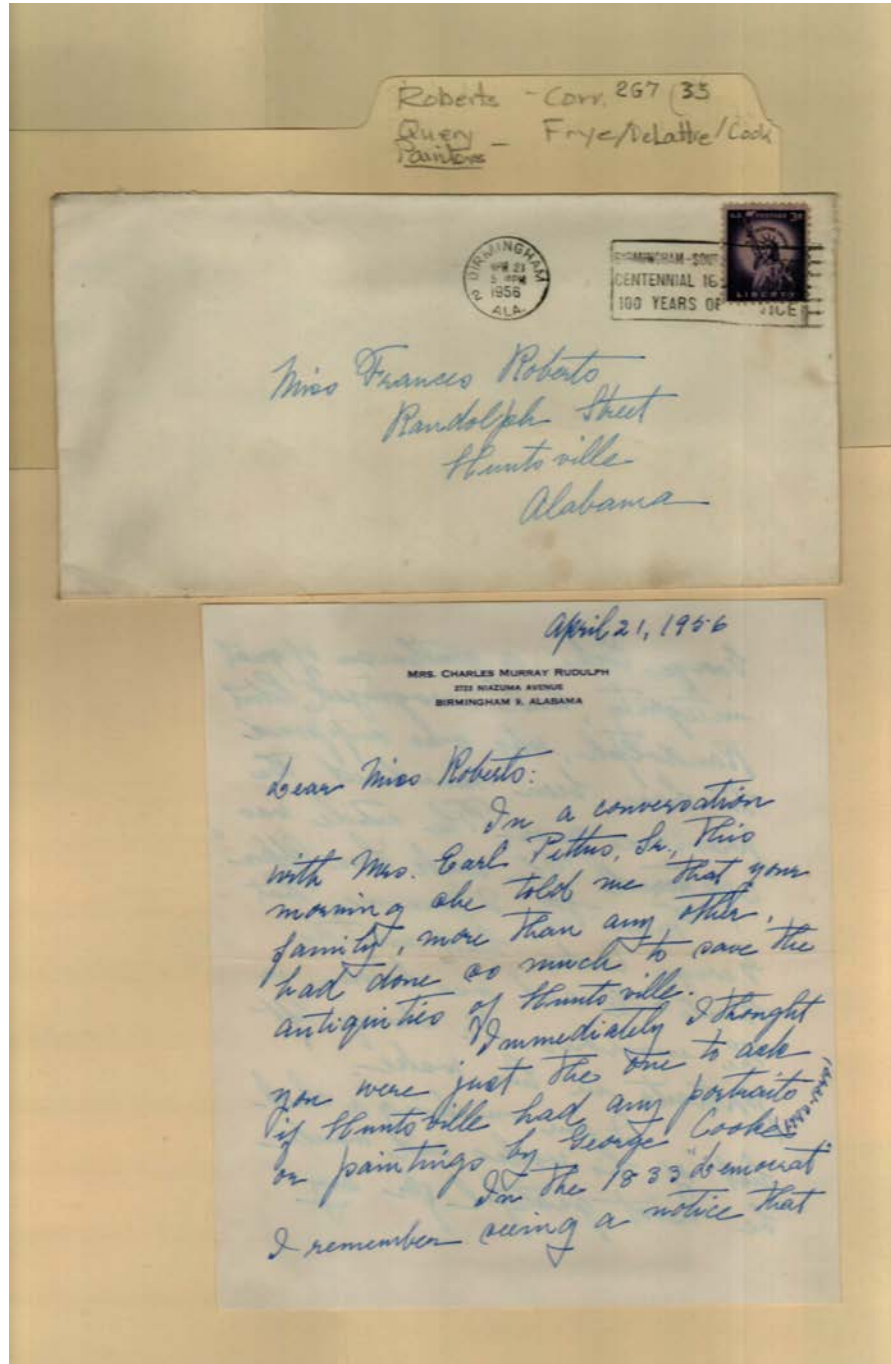 Roberts - Corr. 2G7 (35
Query - Frye/DeLattre/Cook
Painters
BIRMINGHAM
21
5 PM
1956
2
ALA.
BIRMINGHAM-SOU
CENTENNIAL
100 YEARS OF
U.S. POSTAGE 3¢
LIBERTY
Miss Frances Roberts
Randolph Street
Huntsville
Alabama
April 21, 1956
MRS. CHARLES MURRAY RUDULPH
NIAZUMA AVENUE
BIRMINGHAM 9, ALABAMA
Dear Miss Roberts:
In a conversation
with Mrs. Earl Pettus, Sr., this
morning she told me that your
family, more than any other,
had done so much to save the
antiquities of Huntsville.
Immediately I thought
you were just the one to ask
if Huntsville had any portraits
or paintings by George Cooke
In the 1833 "Democrat"
I remember seeing a notice that